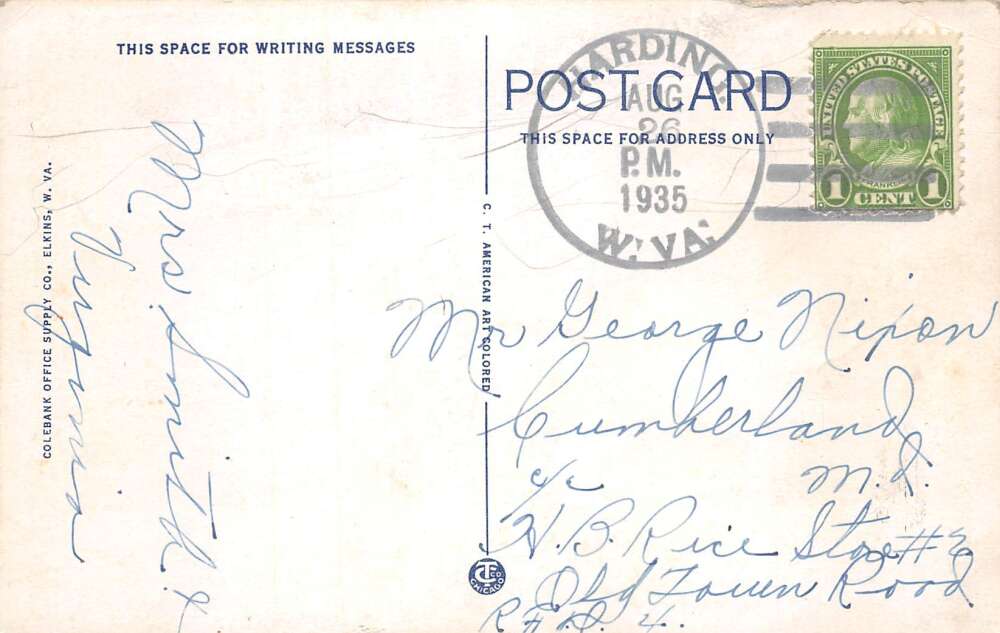 THIS SPACE FOR WRITING MESSAGES
POST CARD
THIS SPACE FOR ADDRESS ONLY
HARDING.
AUG
26
P.M.
1935
W. VA.
UNITED STATES POSTAGE
FRANKLIN
1 CENT 1
COLEBANK OFFICE SUPPLY CO., ELKINS, W. VA.
C. T. AMERICAN ART COLORED
Mr George Nixon
Cumberland
M.d.
c/o
H. B. Rice Store #2
Old Town Road
R.F.D. 4.
C T CO
CHICAGO